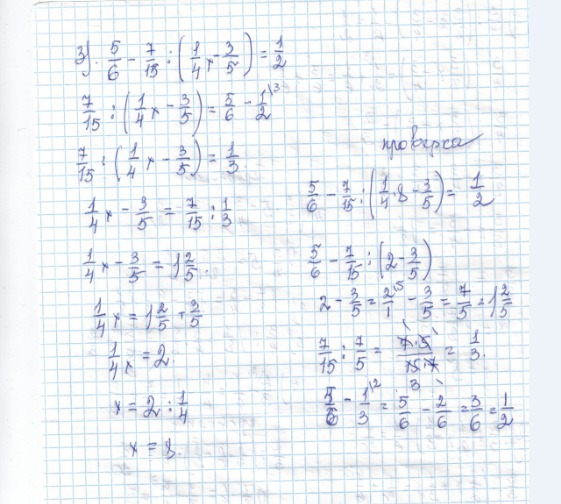 3). 5/6 - 7/15 : (1/4 x - 3/5) = 1/2
7/15 : (1/4 x - 3/5) = 5/6 - 1/2 \3
7/15 : (1/4 x - 3/5) = 1/3
1/4 x - 3/5 = 7/15 : 1/3
1/4 x - 3/5 = 1 2/5.
1/4 x = 1 2/5 + 3/5
1/4 x = 2.
x = 2 : 1/4
x = 8.
проверка
5/6 - 7/15 : (1/4 · 8 - 3/5) = 1/2
5/6 - 7/15 : (2 - 3/5)
2 - 3/5 = 2/1 \5 - 3/5 = 7/5 = 1 2/5
7/15 : 7/5 = 7·5/15·7 = 1/3.
5/6 - 1/3 \2 = 5/6 - 2/6 = 3/6 = 1/2